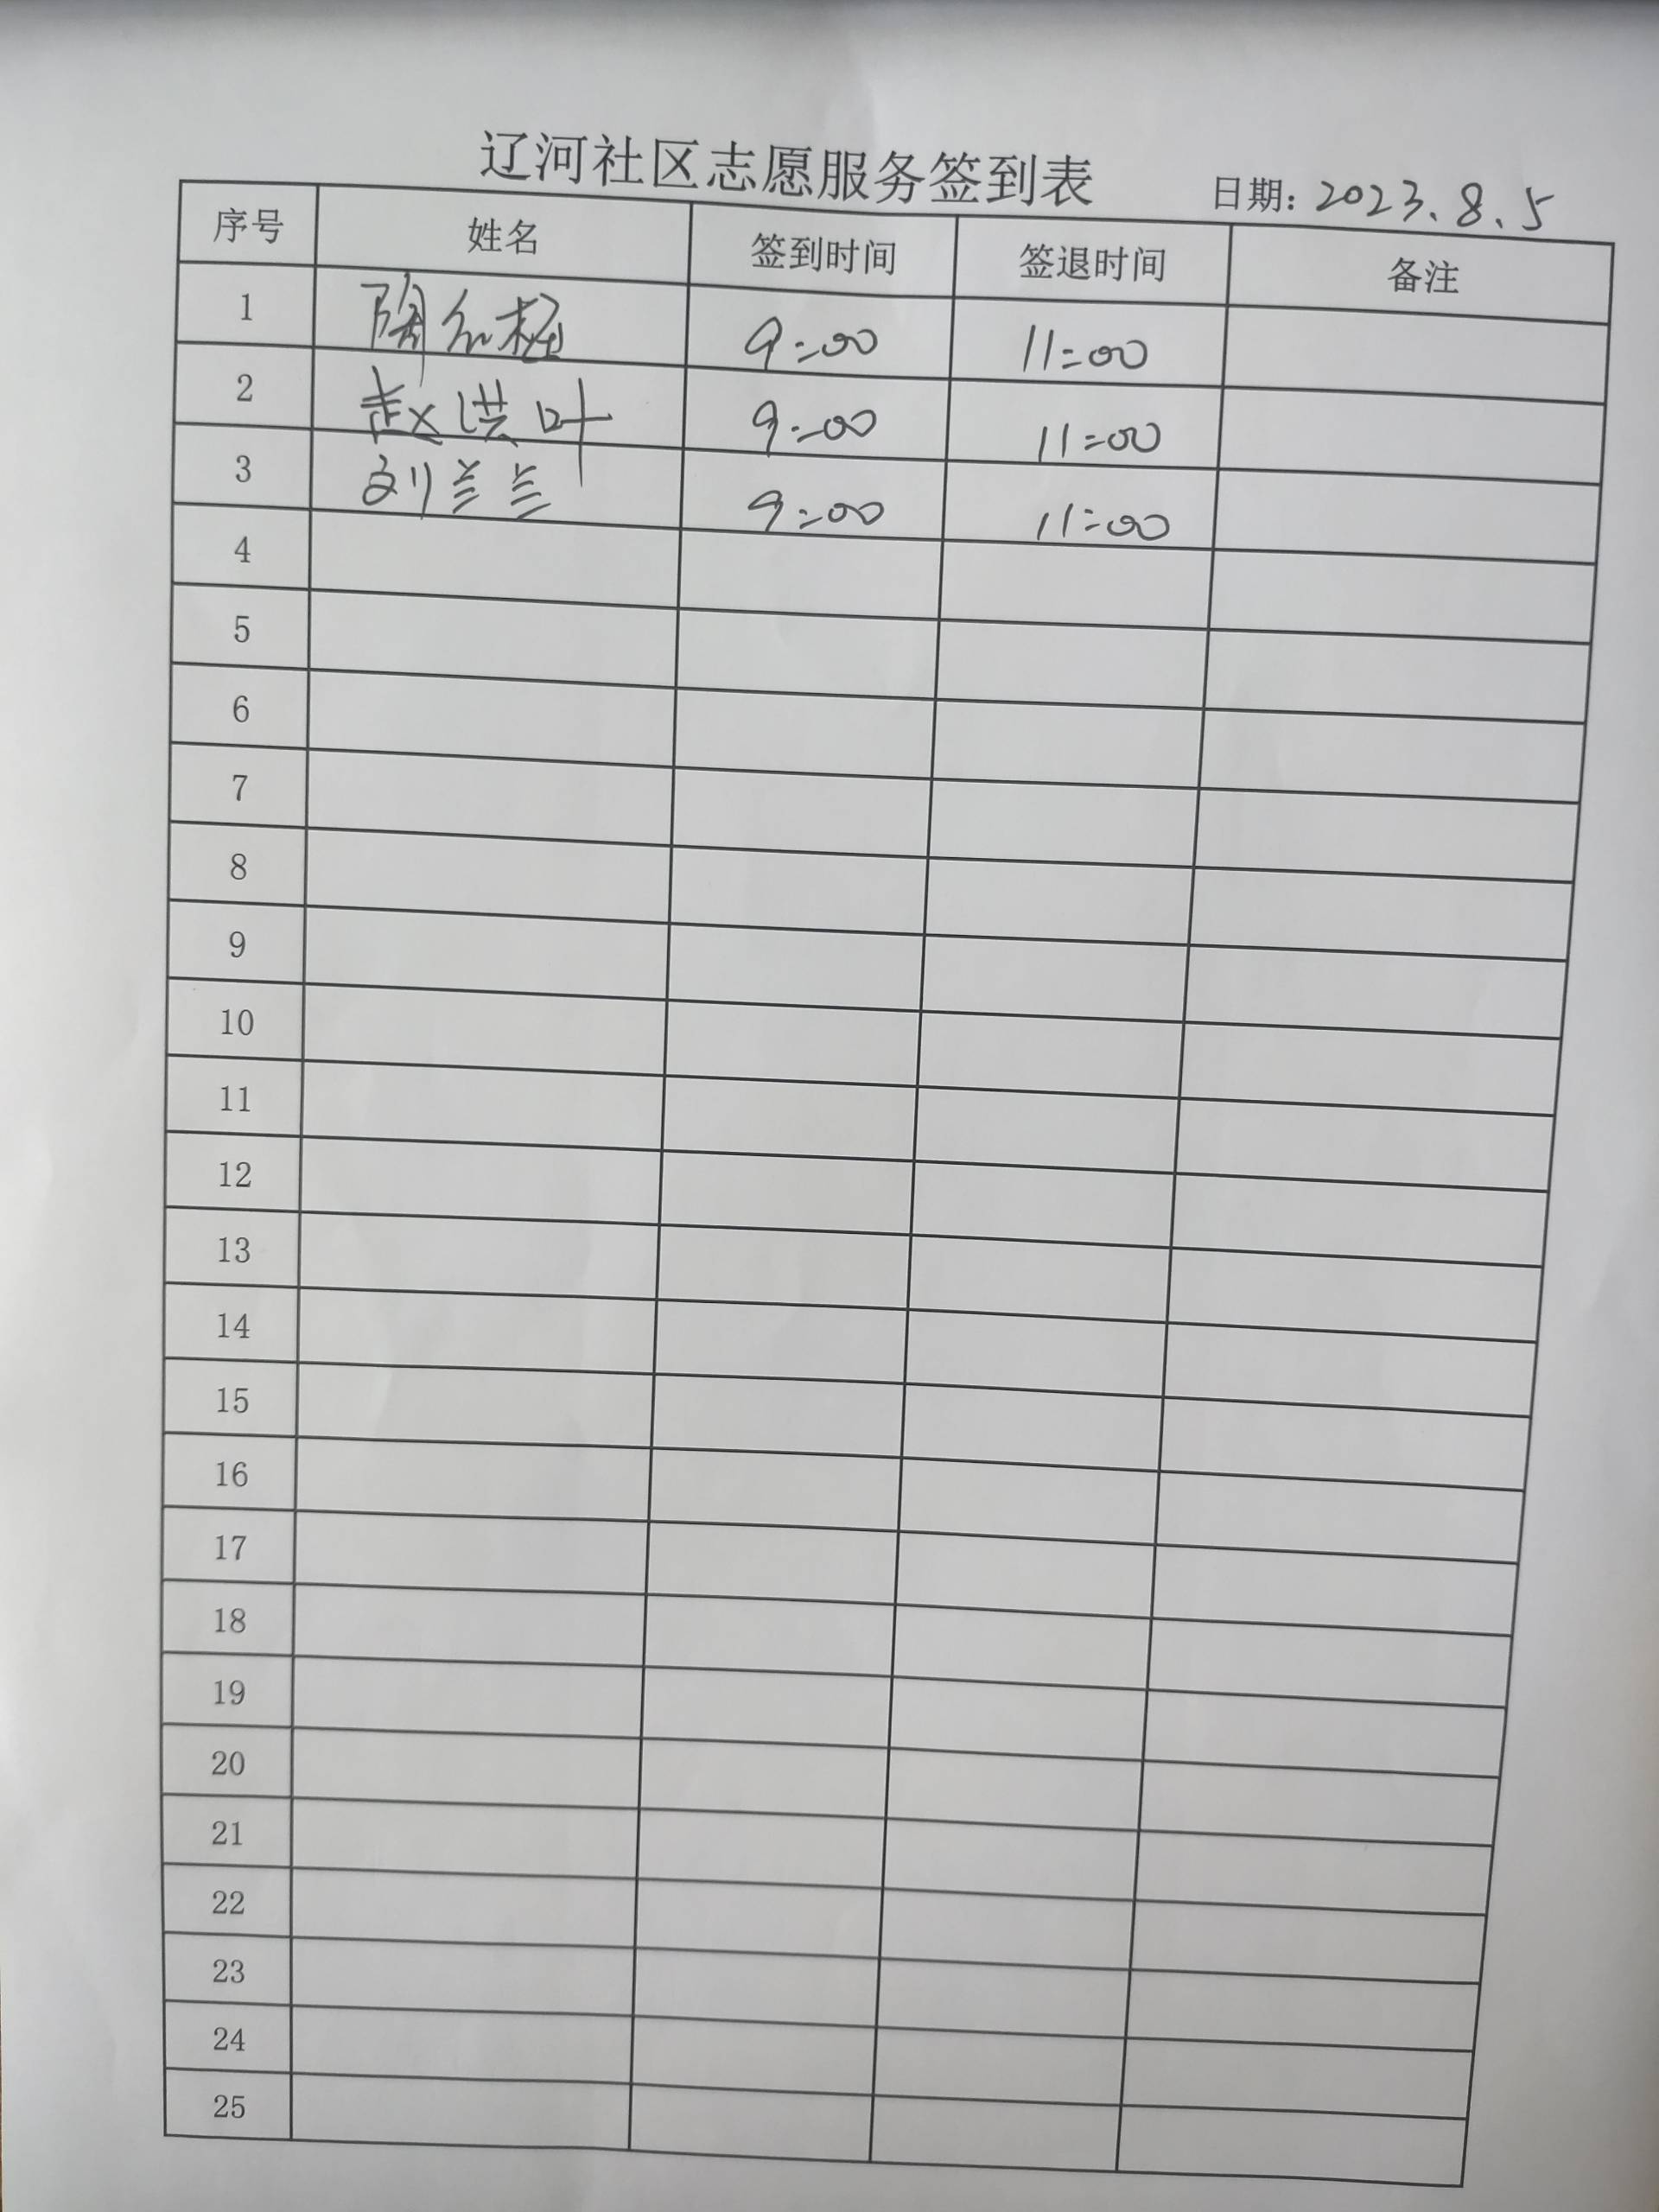 辽河社区志愿服务签到表
日期: 2023.8.5
序号 姓名 签到时间 签退时间 备注
1 9:00 11:00
2 赵洪叶 9:00 11:00
3 刘兰兰 9:00 11:00
4
5
6
7
8
9
10
11
12
13
14
15
16
17
18
19
20
21
22
23
24
25